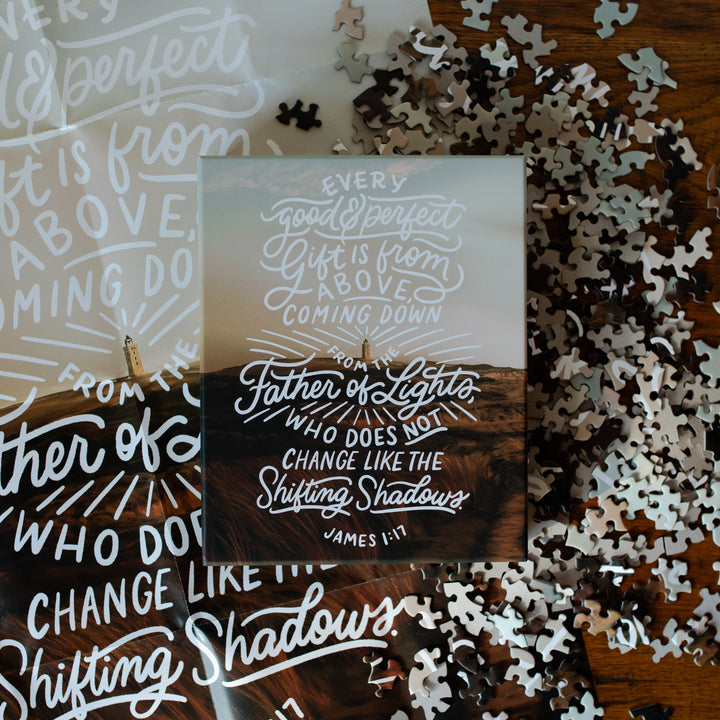 EVERY
good & perfect
Gift IS from
ABOVE,
COMING DOWN
FROM THE
Father of Lights,
WHO DOES NOT
CHANGE LIKE THE
Shifting Shadows.
JAMES 1:17
VERY
d & perfect
ft IS from
ABOVE,
OMING DO
FROM THE
ther of L
WHO DOE
CHANGE LIKE THE
Shifting Shadows.
17